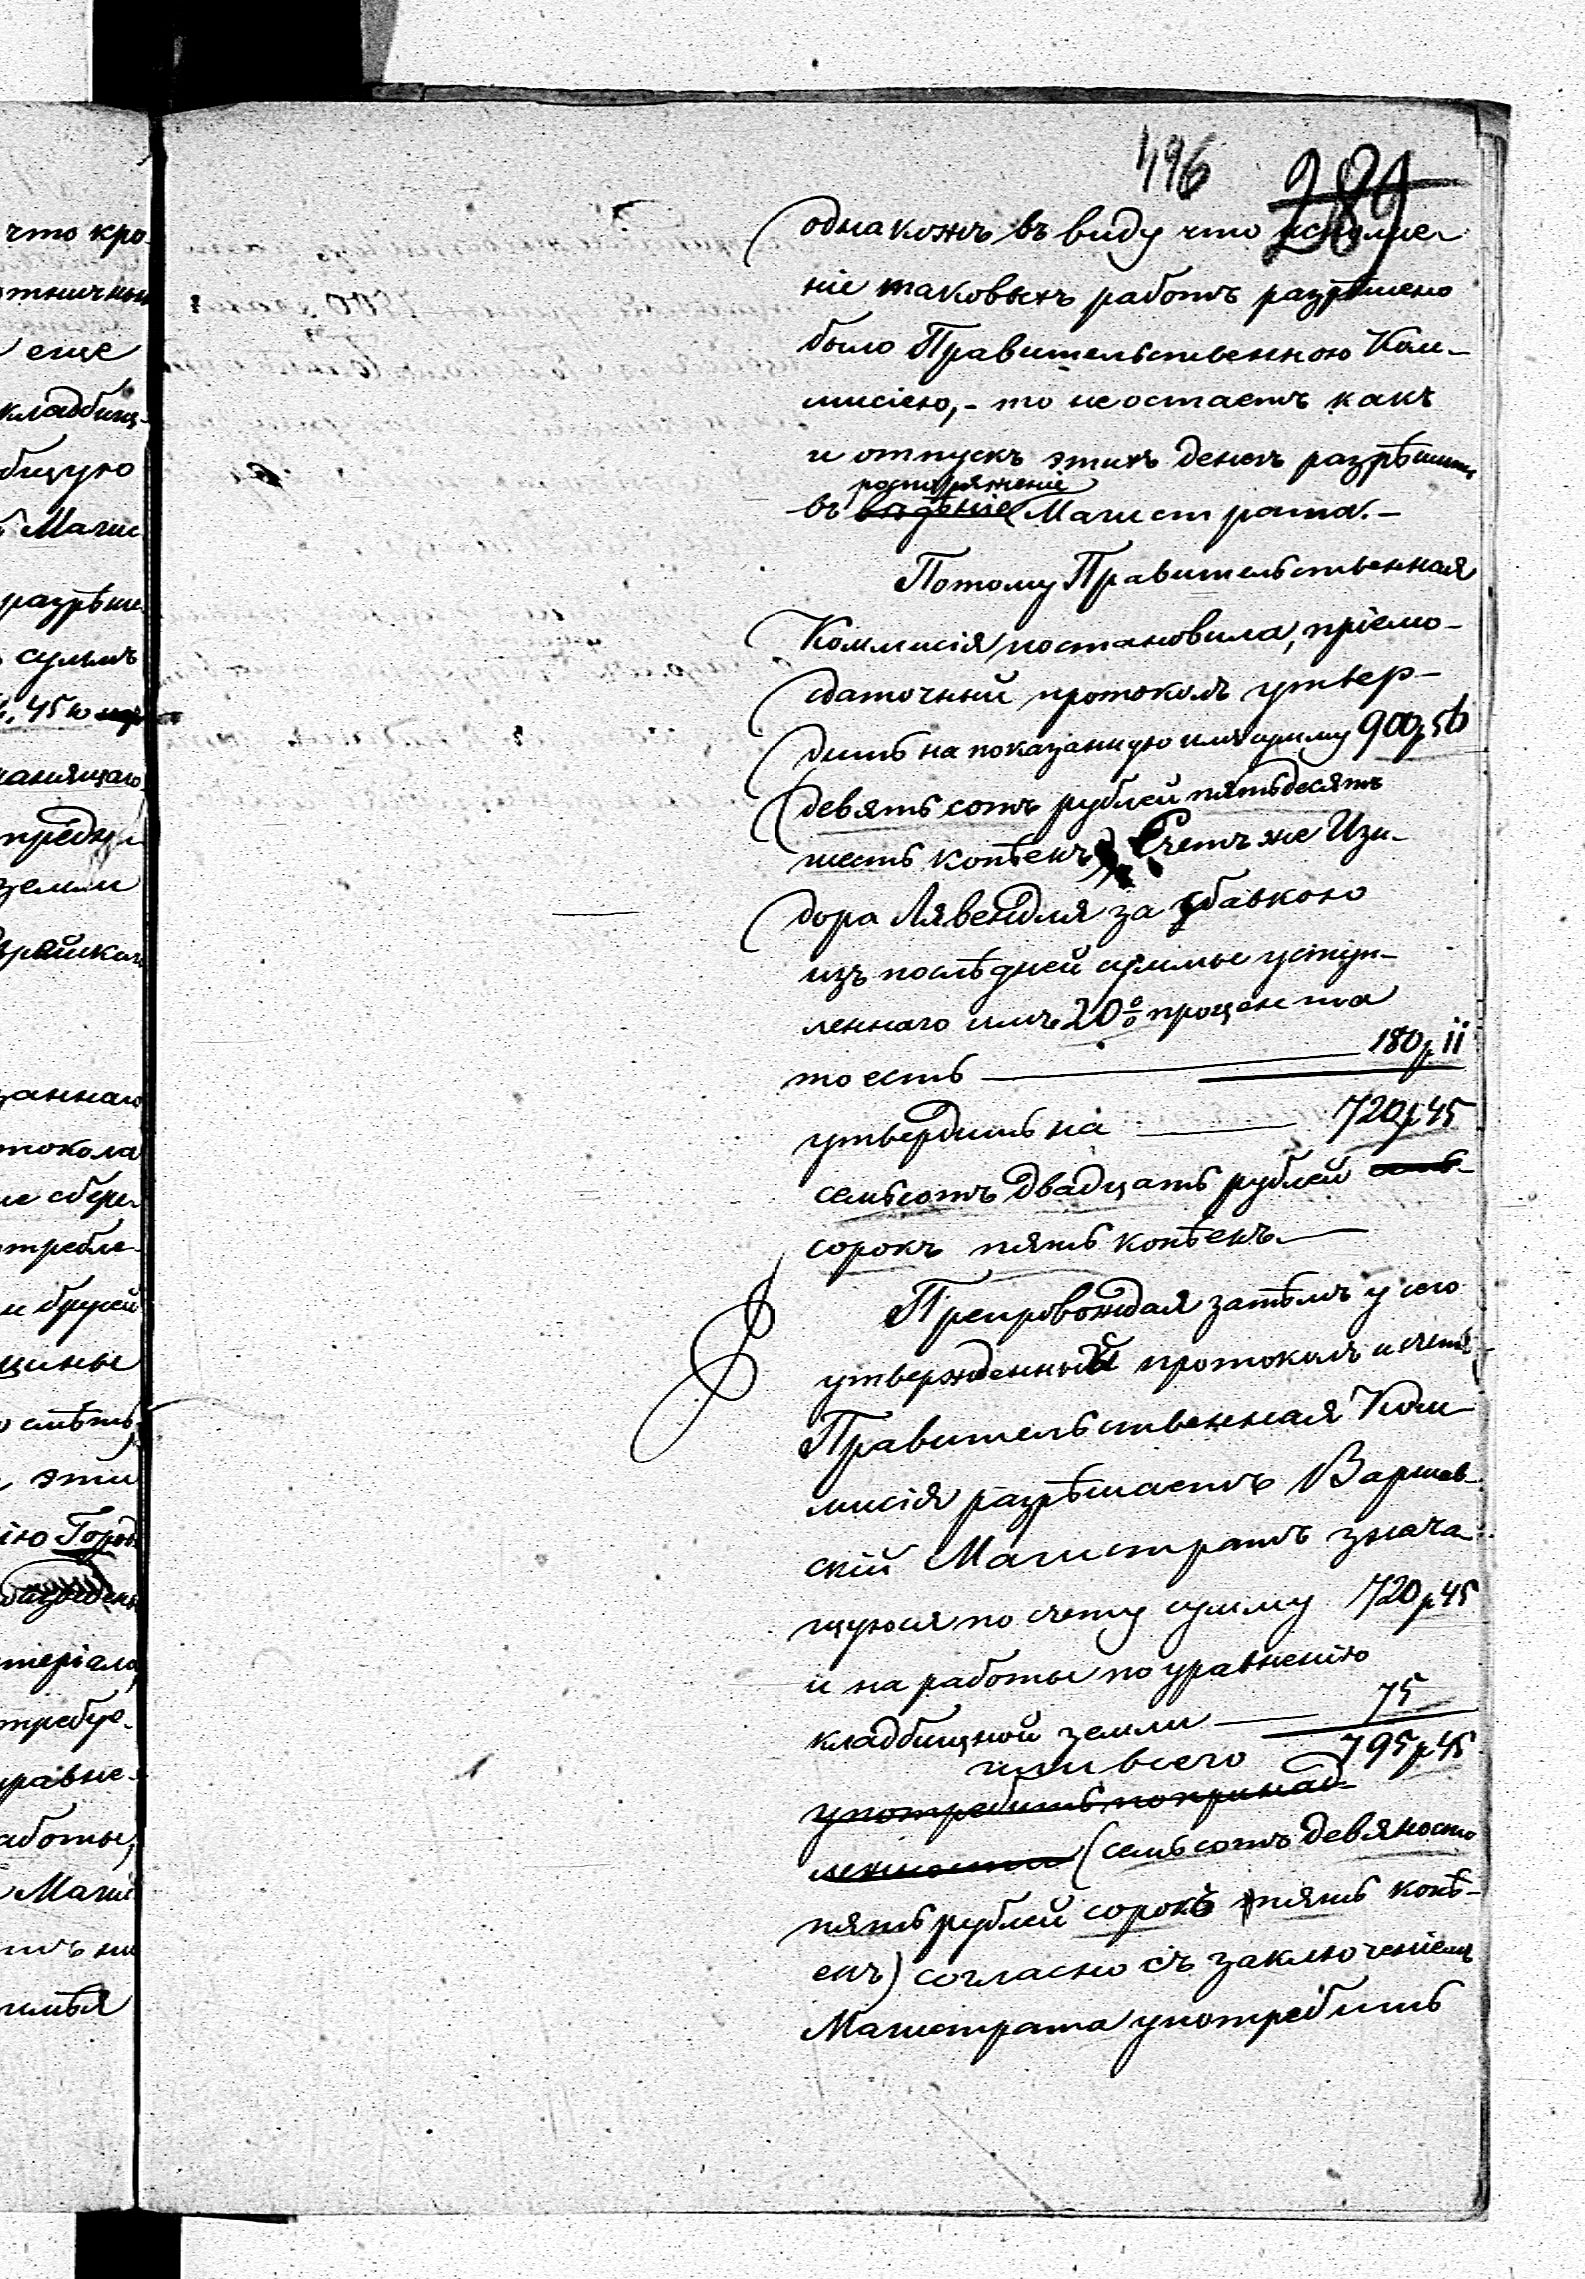 496 289
однакожъ въ виду что исполне-
ніе таковыхъ работъ разрѣшено
было Правительственною Ком-
мисіею,- то не остаетъ какъ
и отпускъ этихъ денегъ разрѣшить
распоряженіе
въ вѣдѣніе Магистрата.-
Потому Правительственная
Коммисія постановила, пріемо-
сдаточный протоколъ утвер-
дить на показанную имъ сумму 900 р 56
девять сотъ рублей пятьдесятъ
шесть копѣекъ, Счетъ же Изи-
дора Лявендля за убавкою
изъ послѣдней суммы уступ-
леннаго имъ 20% процента
то есть 180 р 11
утвердить на 720 р 45
семьсотъ двадцать рублей
сорокъ пять копѣекъ
Препровождая затѣмъ у сего
утвержденный протоколъ и счетъ
Правительственная Ком-
мисія разрѣшаетъ Варшав-
скій Магистратъ знача-
щуюся по счету сумму 720 р 45
и на работы по уравненію
кладбищной земли 75
или всего 795 р 45
употребить по принад-
лежности (семьсотъ девяносто
пять рублей сорокъ пять копѣ-
екъ) согласно съ заключеніемъ
Магистрата употребить
что кро-
еще
кладбищ-
общую
Магис
разрѣше
суммъ
45 ю
земли
протокола
и другой
смѣтъ
эти
Город
матеріала
требуе-
уравне-
работы,
Магис
имѣя